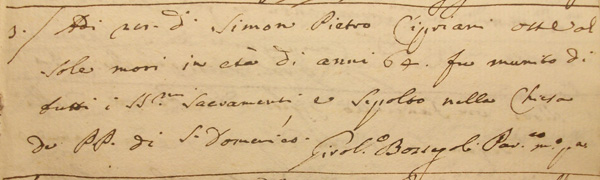 3. Adi dº. di Simon Pietro Cipriani oste al
Sole morì in età di anni 64. fu munito di
tutti i SS.mi Sacramenti e Sepolto nella Chiesa
de PP. di S. Domenico. Girol.º Bozzgoli Par.co m.º pª